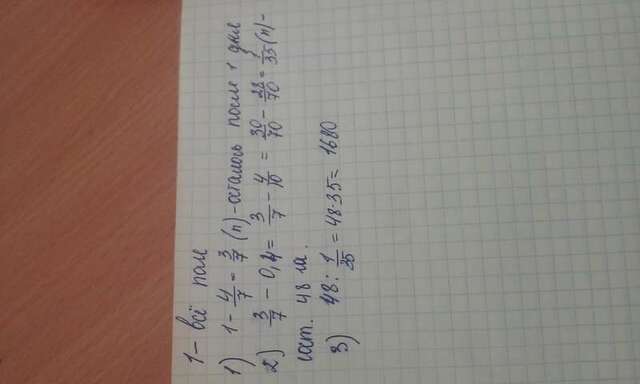 1 – всё поле
1) 1 - 4/7 = 3/7 (п) - осталось после 1 дня
2) 3/7 - 0,4 = 3/7 - 4/10 = 30/70 - 28/70 = 1/35 (п) -
сост. 48 га.
3) 48 : 1/35 = 48·35 = 1680